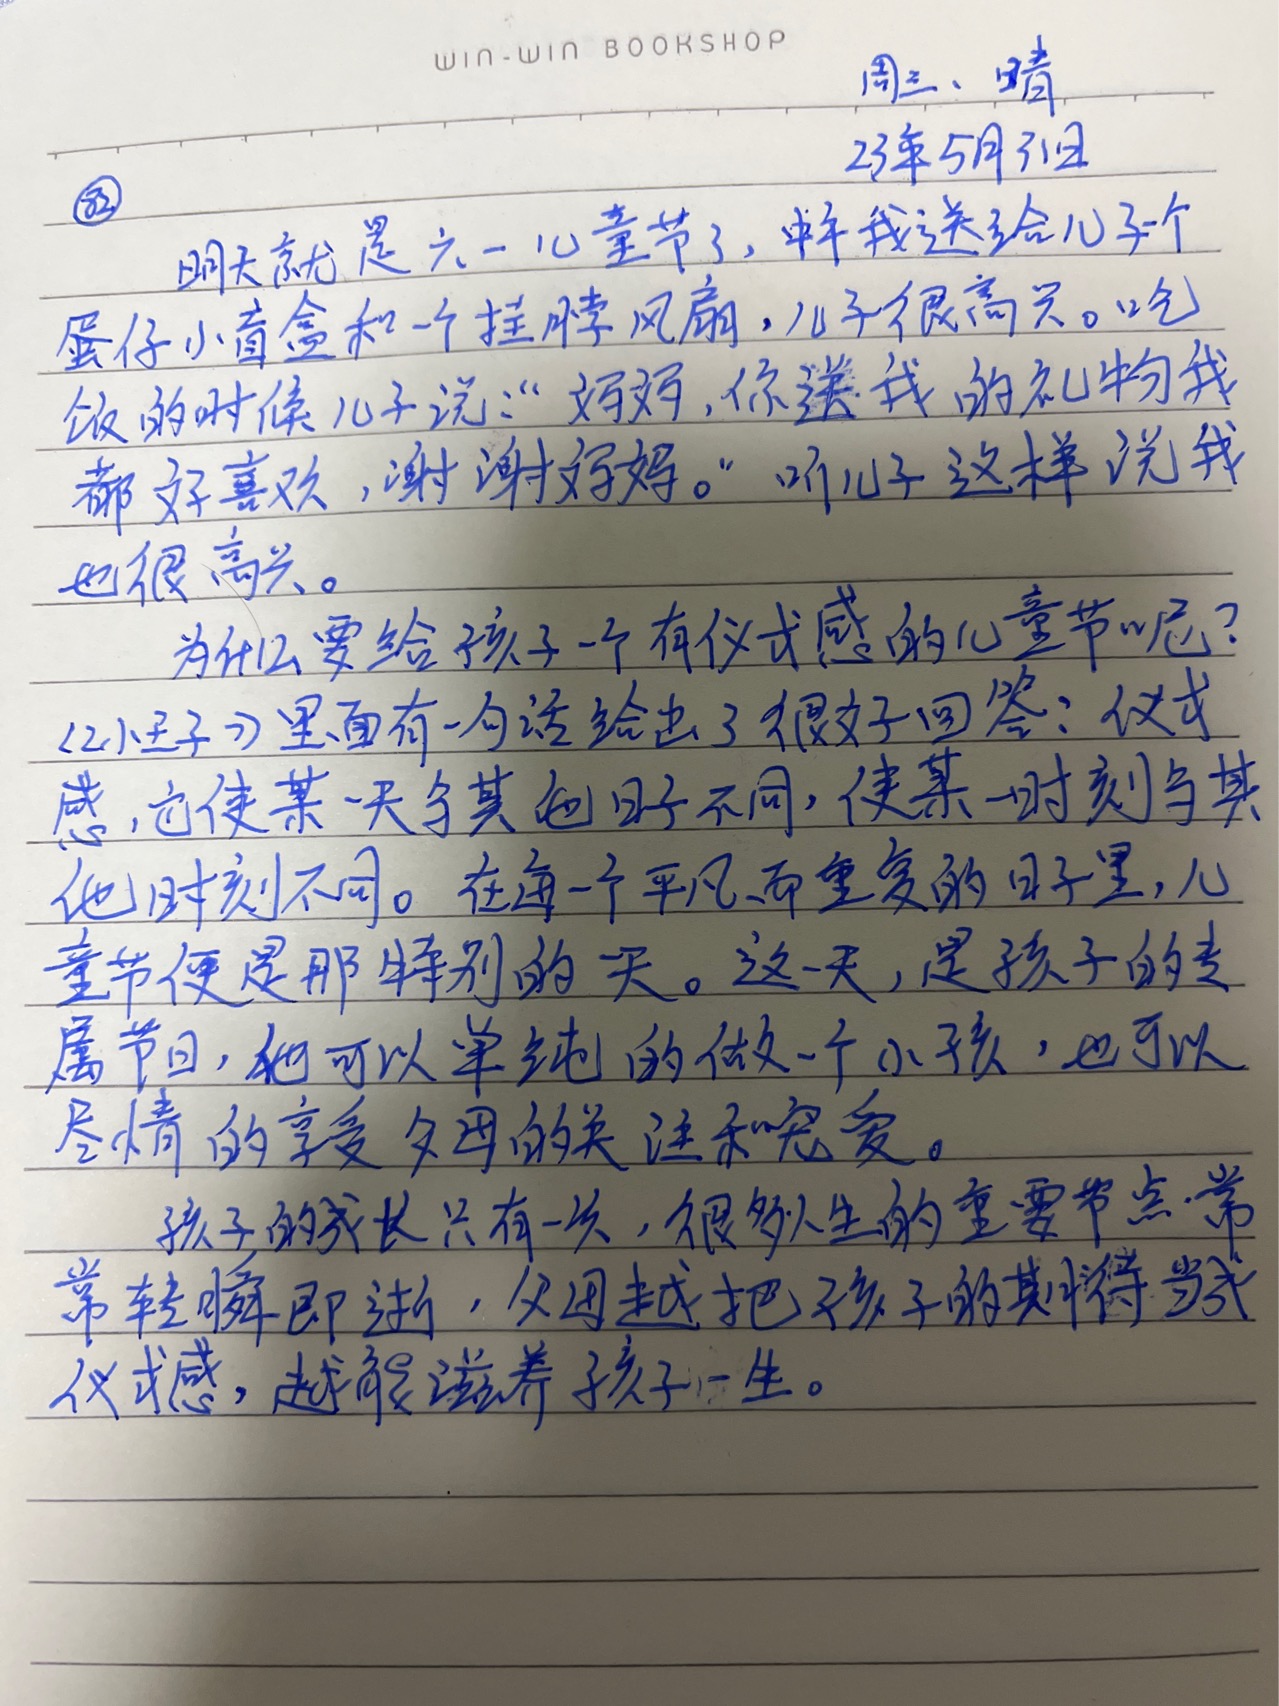 WIN-WIN BOOKSHOP
周三、晴
23年5月31日
明天就是六一儿童节了,我送给儿子一个
蛋仔小盲盒和一个挂脖风扇,儿子很高兴。吃
饭的时候儿子说:“妈妈,你送我的礼物我
都好喜欢,谢谢妈妈。”听儿子这样说我
也很高兴。
为什么要给孩子一个有仪式感的儿童节呢?
《小王子》里面有一句话给出了很好回答:仪式
感,它使某一天与其他日子不同,使某一时刻与其
他时刻不同。在每一个平凡而重复的日子里,儿
童节便是那特别的一天。这一天,是孩子的专
属节日,他可以单纯的做一个小孩,也可以
尽情的享受父母的关注和宠爱。
孩子的成长只有一次,很多人生的重要节点常
常转瞬即逝,父母越把孩子的期待当成
仪式感,越能滋养孩子一生。